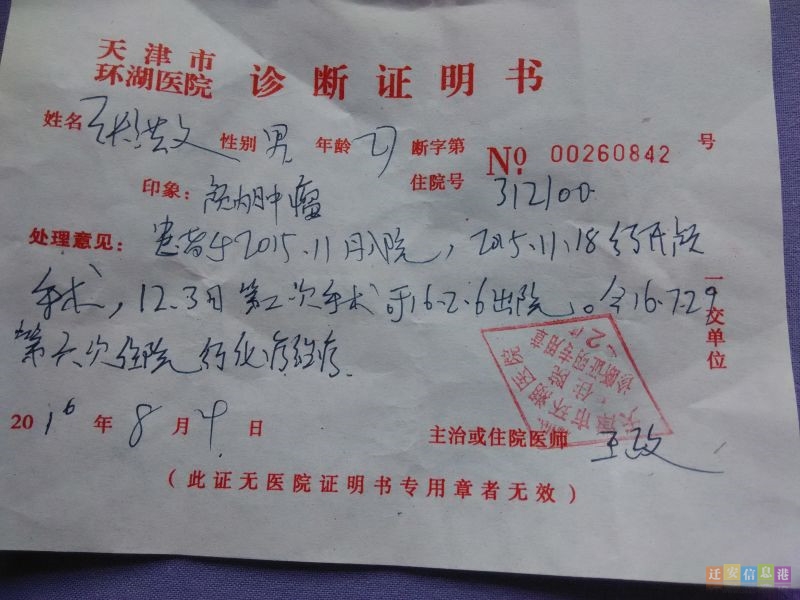 天津市
环湖医院 诊断证明书
姓名 张洪文 性别 男 年龄 断字第 No 00260842 号
印象: 颅内肿瘤 住院号 312100
处理意见: 患者于2015.11月入院, 2015.11.18行开颅
手术, 12.3日第二次手术于16.2.6出院。今16.729
第六次住院 行化疗治疗.
一交单位
天津市环湖医院
住院
诊断证明专用章
2016年8月4日 主治或住院医师 王政
(此证无医院证明书专用章者无效)
迁安信息港